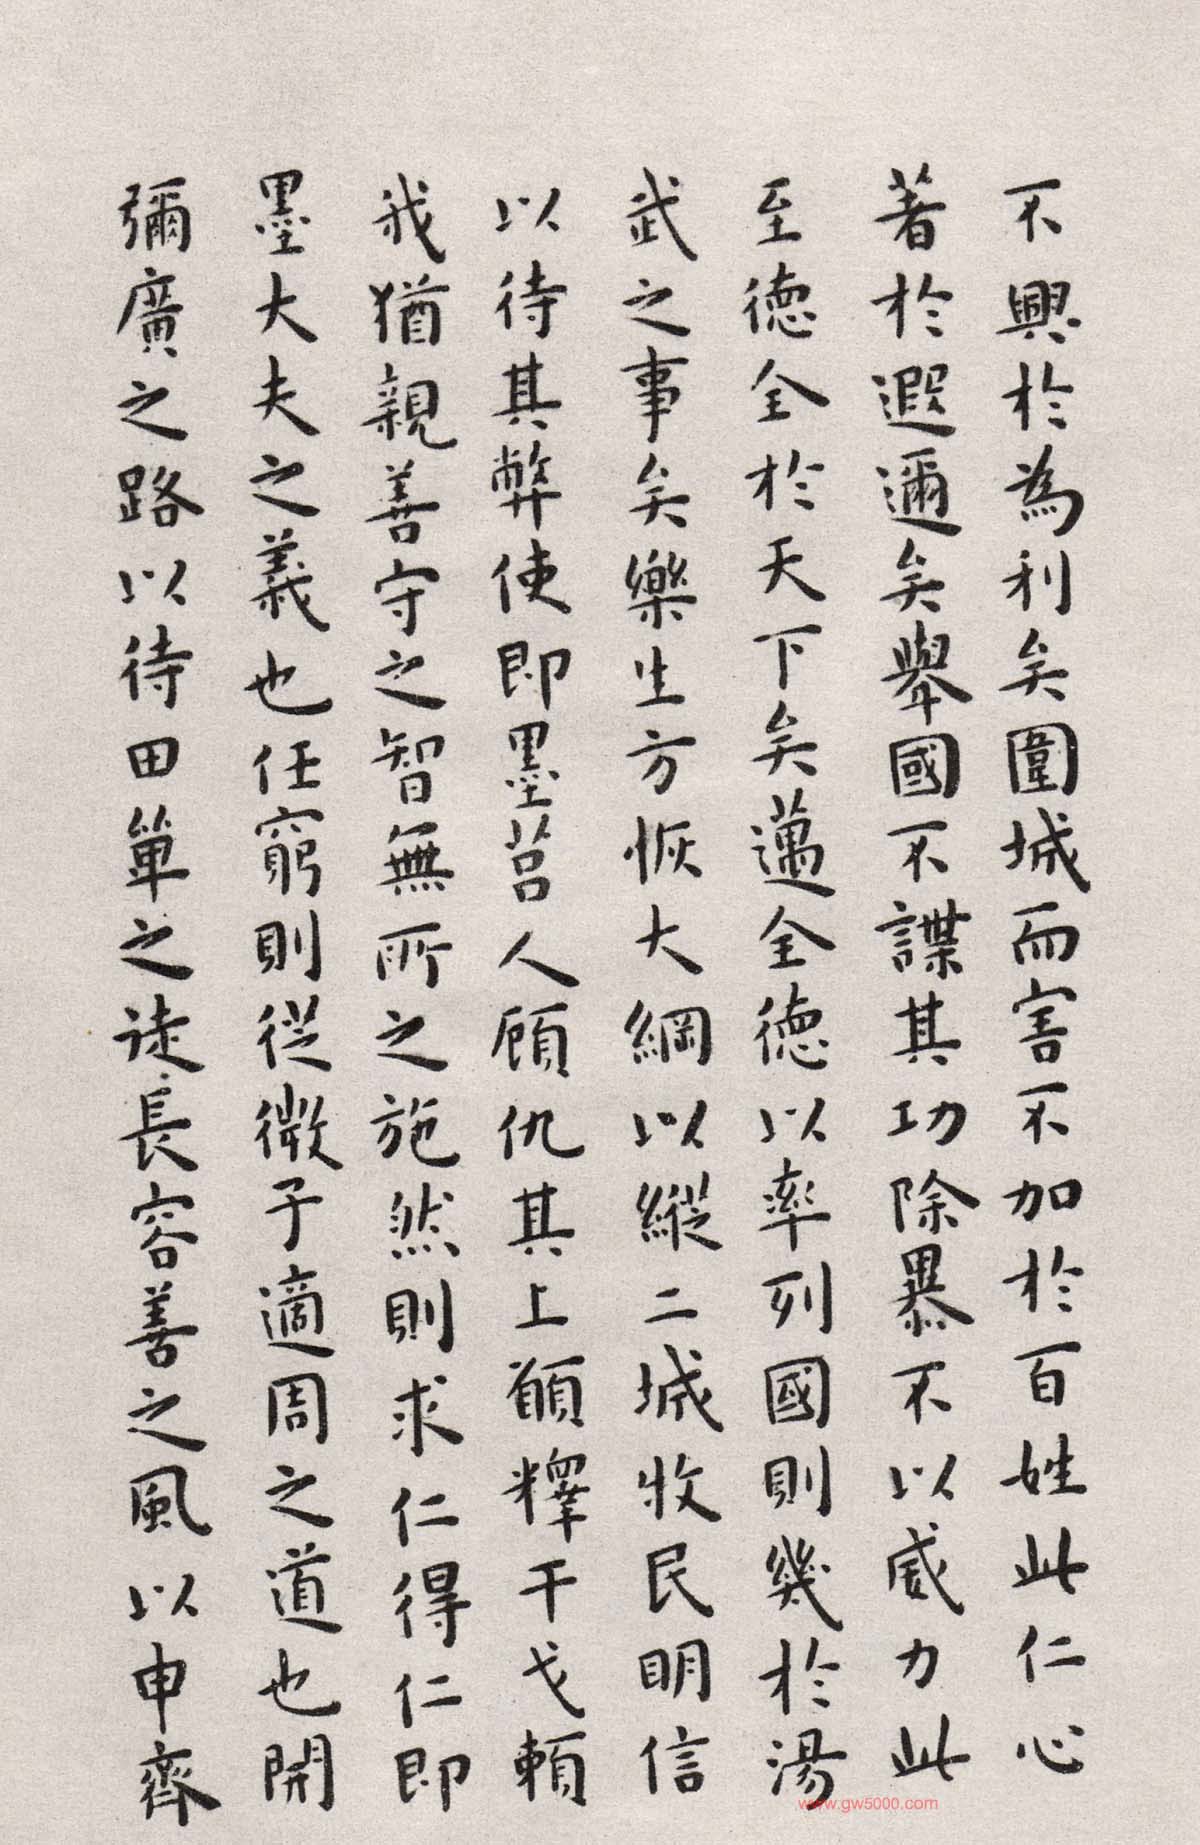 不興於為利矣圍城而害不加於百姓此仁心
著於遐邇矣舉國不謀其功除暴不以威力此
至德全於天下矣邁全德以率列國則幾於湯
武之事矣樂生方恢大綱以縱二城收民明信
以待其弊使即墨莒人顧仇其上願釋干戈賴
我猶親善守之智無所之施然則求仁得仁即
墨大夫之義也任窮則從微子適周之道也開
彌廣之路以待田單之徒長容善之風以申齊
www.gw5000.com